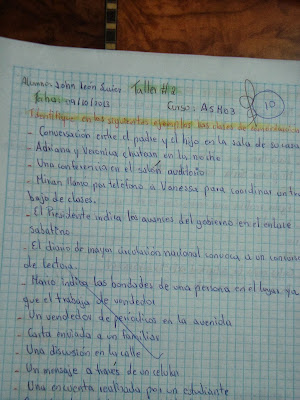 Alumno: John León Suárez Taller #2
Fecha: 09/10/2013 Curso: AS K03 10
Identifique en los siguientes ejemplos las clases de
- Conversación entre el padre y el hijo en la sala de su casa
- Adriana y Verónica chatean en la noche
- Una conferencia en el salón auditorio
- Miran llamo por telefono a Vanessa para coordinar un tra
bajo de clases.
- El Presidente indica los avances del gobierno en el enlace
sabatino
- El diario de mayor circulación nacional convoca a un concurso
de lectura.
- Mario indica las bondades de una persona en el lugar ya
que el trabaja de vendedor
- Un vendedor de periodicos en la avenida
- Carta enviada a un familiar
- Una discusión en la calle
- Un mensaje a través de un celular
- Una encuesta realizada por un estudiante